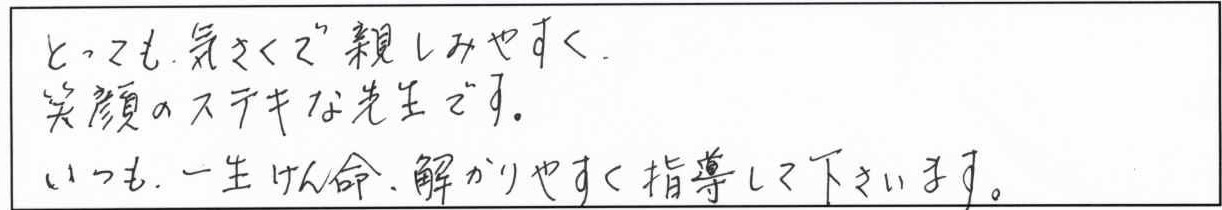 とっても、気さくで親しみやすく、
笑顔のステキな先生です。
いつも、一生けん命、解かりやすく指導して下さいます。